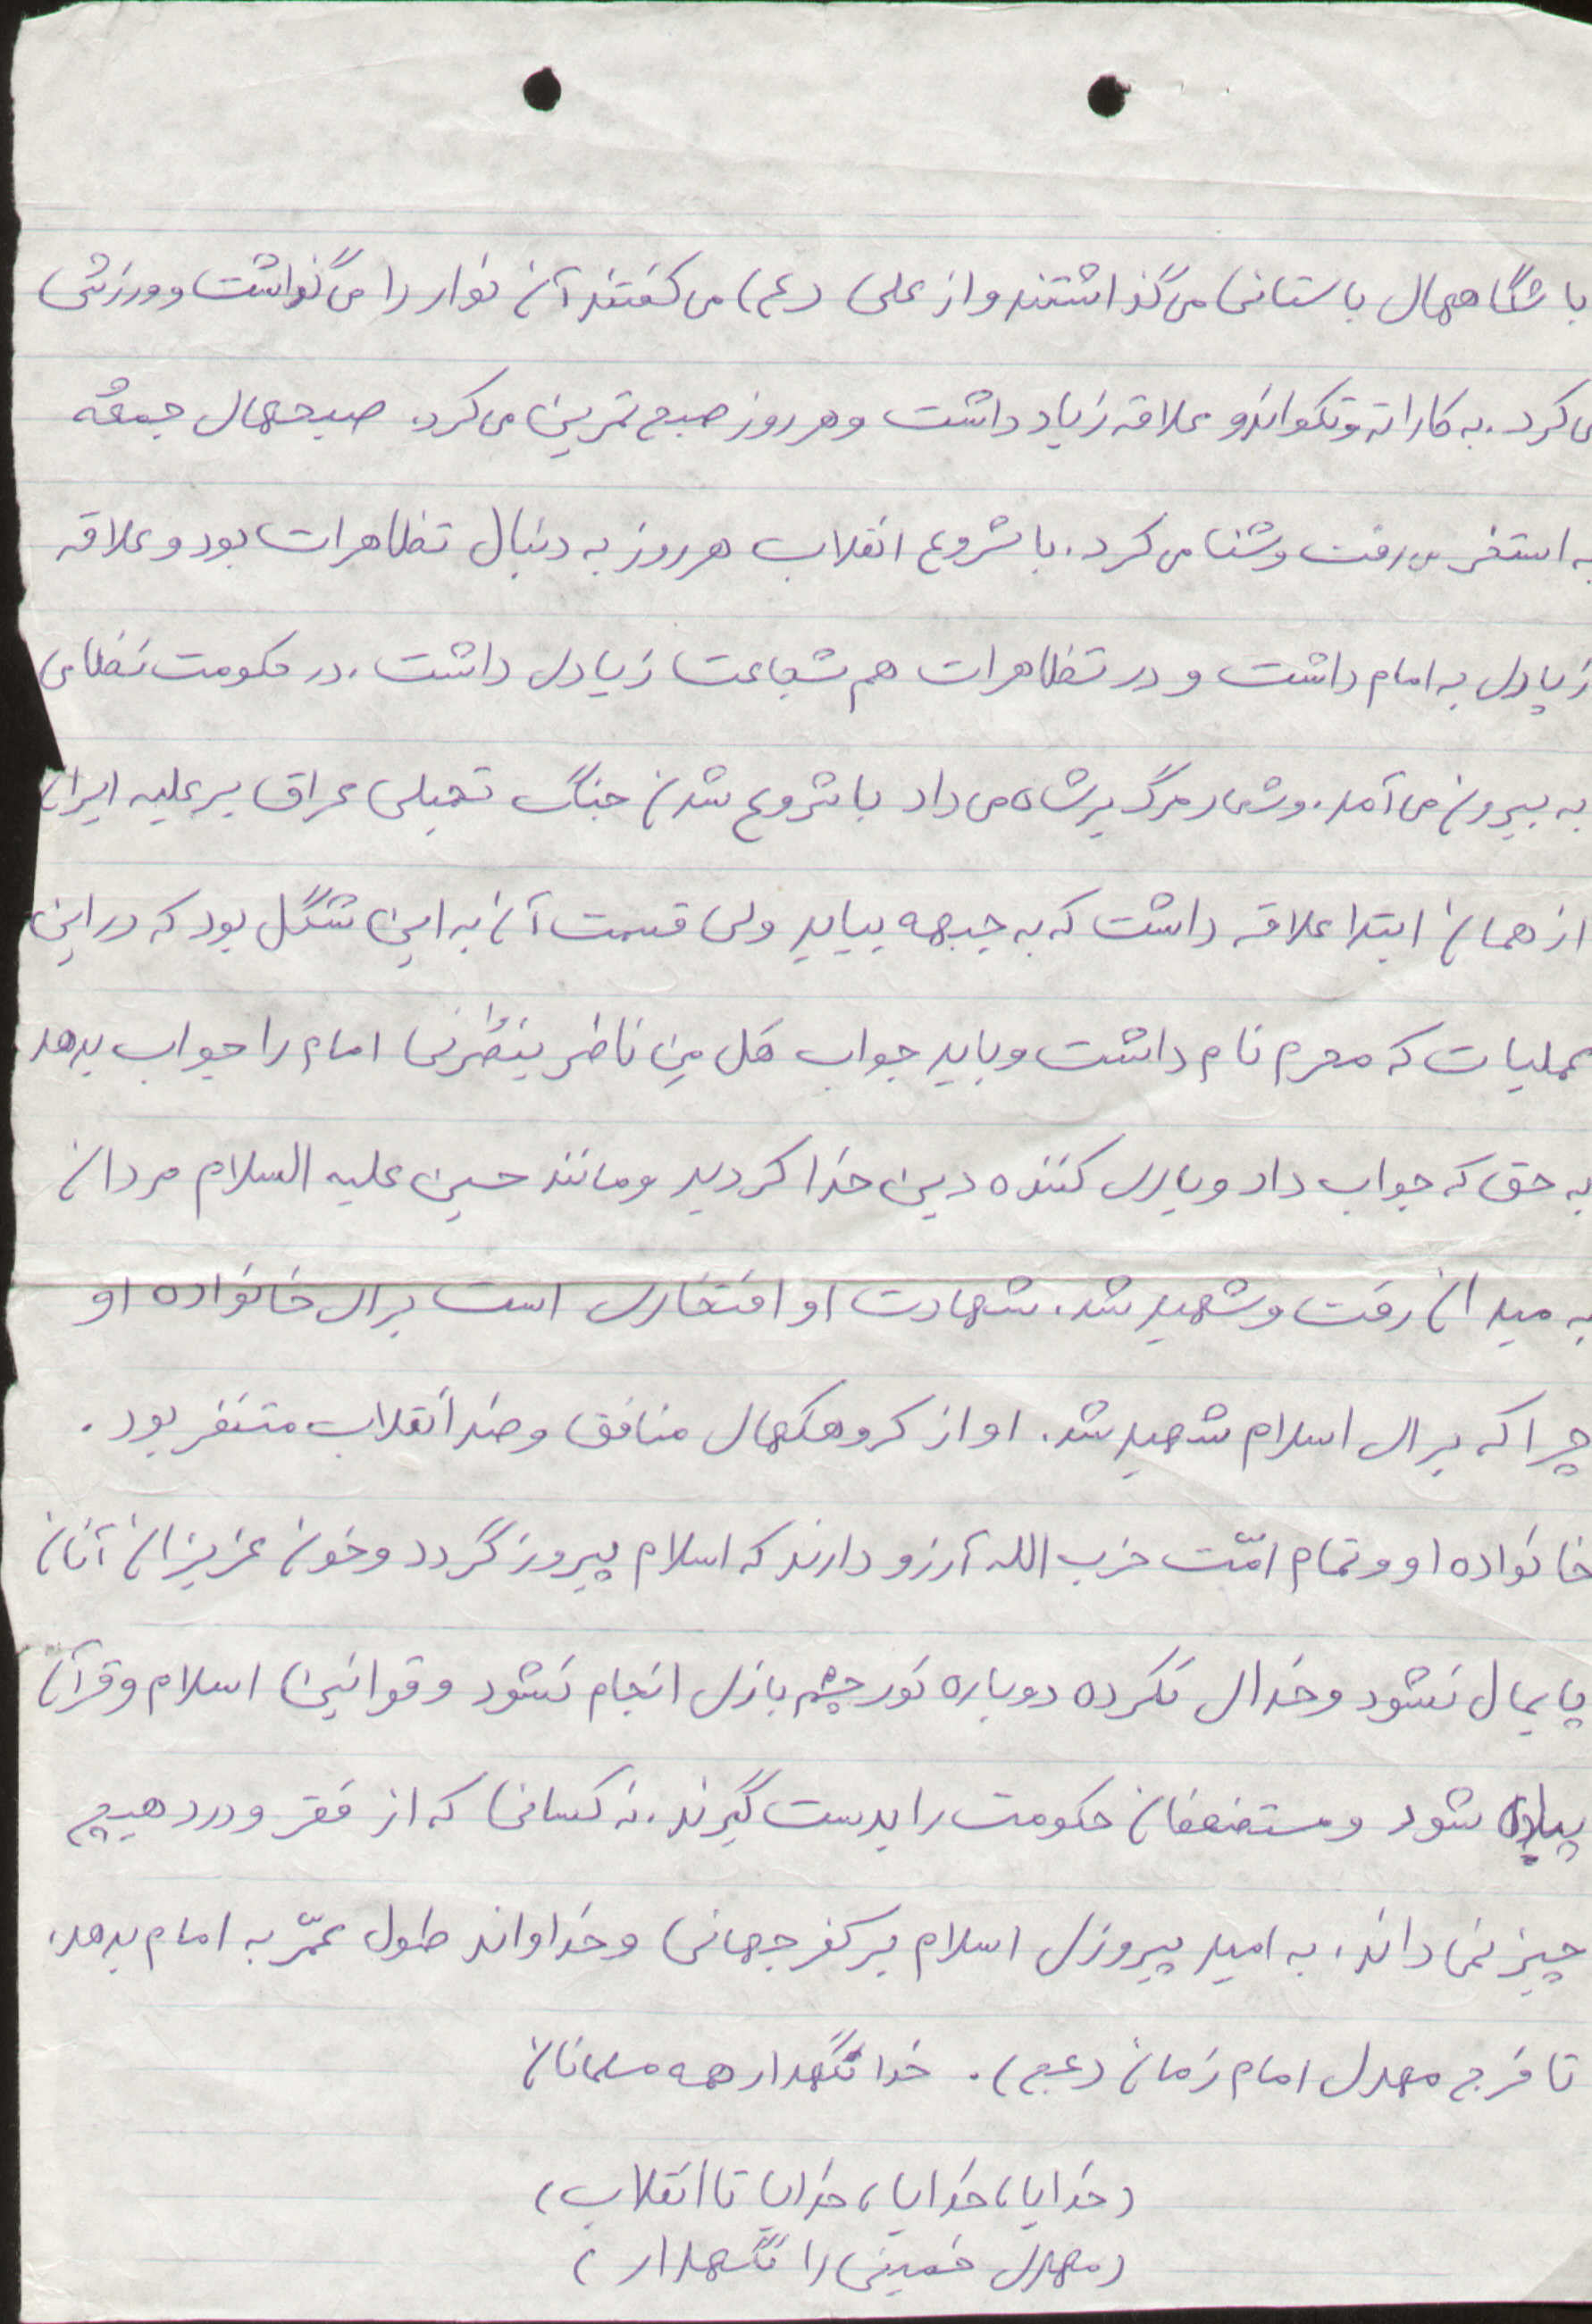 باشگاههای باستانی می‌گذاشتند و از علی (ع) می‌گفتند آن نوار را می‌گذاشت و ورزش
می‌کرد. به کاراته و تکواندو علاقه زیاد داشت و هر روز صبح تمرین می‌کرد. صبحهای جمعه
به استخر می‌رفت و شنا می‌کرد. با شروع انقلاب هر روز به دنبال تظاهرات بود و علاقه
زیادی به امام داشت و در تظاهرات هم شجاعت زیادی داشت. در حکومت نظامی
به بیرون می‌آمد. و شعار مرگ بر شاه می‌داد با شروع شدن جنگ تحمیلی عراق بر علیه ایران
از همان ابتدا علاقه داشت که به جبهه بیاید ولی قسمت آن به این شکل بود که در این
عملیات که محرم نام داشت و باید جواب هَل مِن ناظر ینظُرنی امام را جواب بدهد
به حق که جواب داد و یاری کننده دین خدا گردید و مانند حسین علیه السلام مردان
به میدان رفت و شهید شد. شهادت او افتخاری است برای خانواده او
چرا که برای اسلام شهید شد. او از گروهکهای منافق و ضد انقلاب متنفر بود.
خانواده او و تمام امّت حزب الله آرزو دارند که اسلام پیروز گردد و خون عزیزان آنان
پایمال نشود و خدای نکرده دوباره نور چشم بازی انجام نشود و قوانین اسلام و قرآن
پیاده شود و مستضعفان حکومت را بدست گیرند. نه کسانی که از فقر و درد هیچ
چیز نمی‌داند. به امید پیروزی اسلام بر کفر جهانی و خداواند طول عمّر به امام بدهد.
تا فرج مهدی امام زمان (عج). خدا نگهدار همه مسلمانان
(خدایا، خدایا، خدایا تا انقلاب)
(مهدی خمینی را نگهدار)